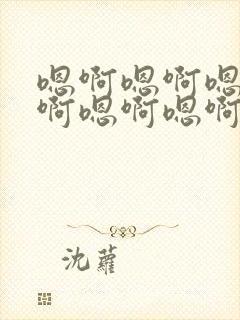 嗯啊嗯啊嗯
啊嗯啊嗯啊
沈蘿